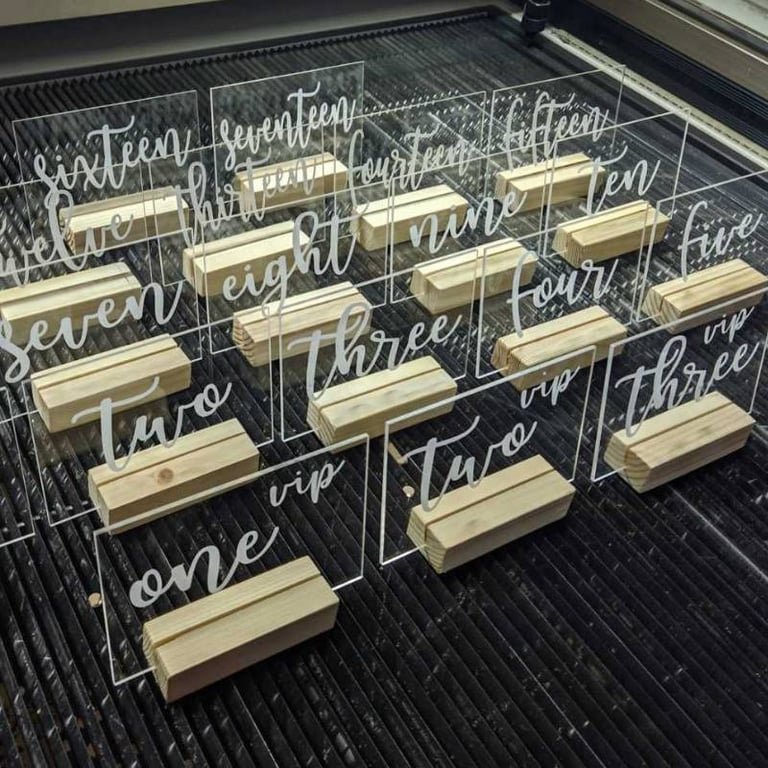 sixteen
seventeen
fourteen
fifteen
twelve
thirteen
nine
ten
seven
eight
four
five
two
three
vip
two
vip
three
vip
one